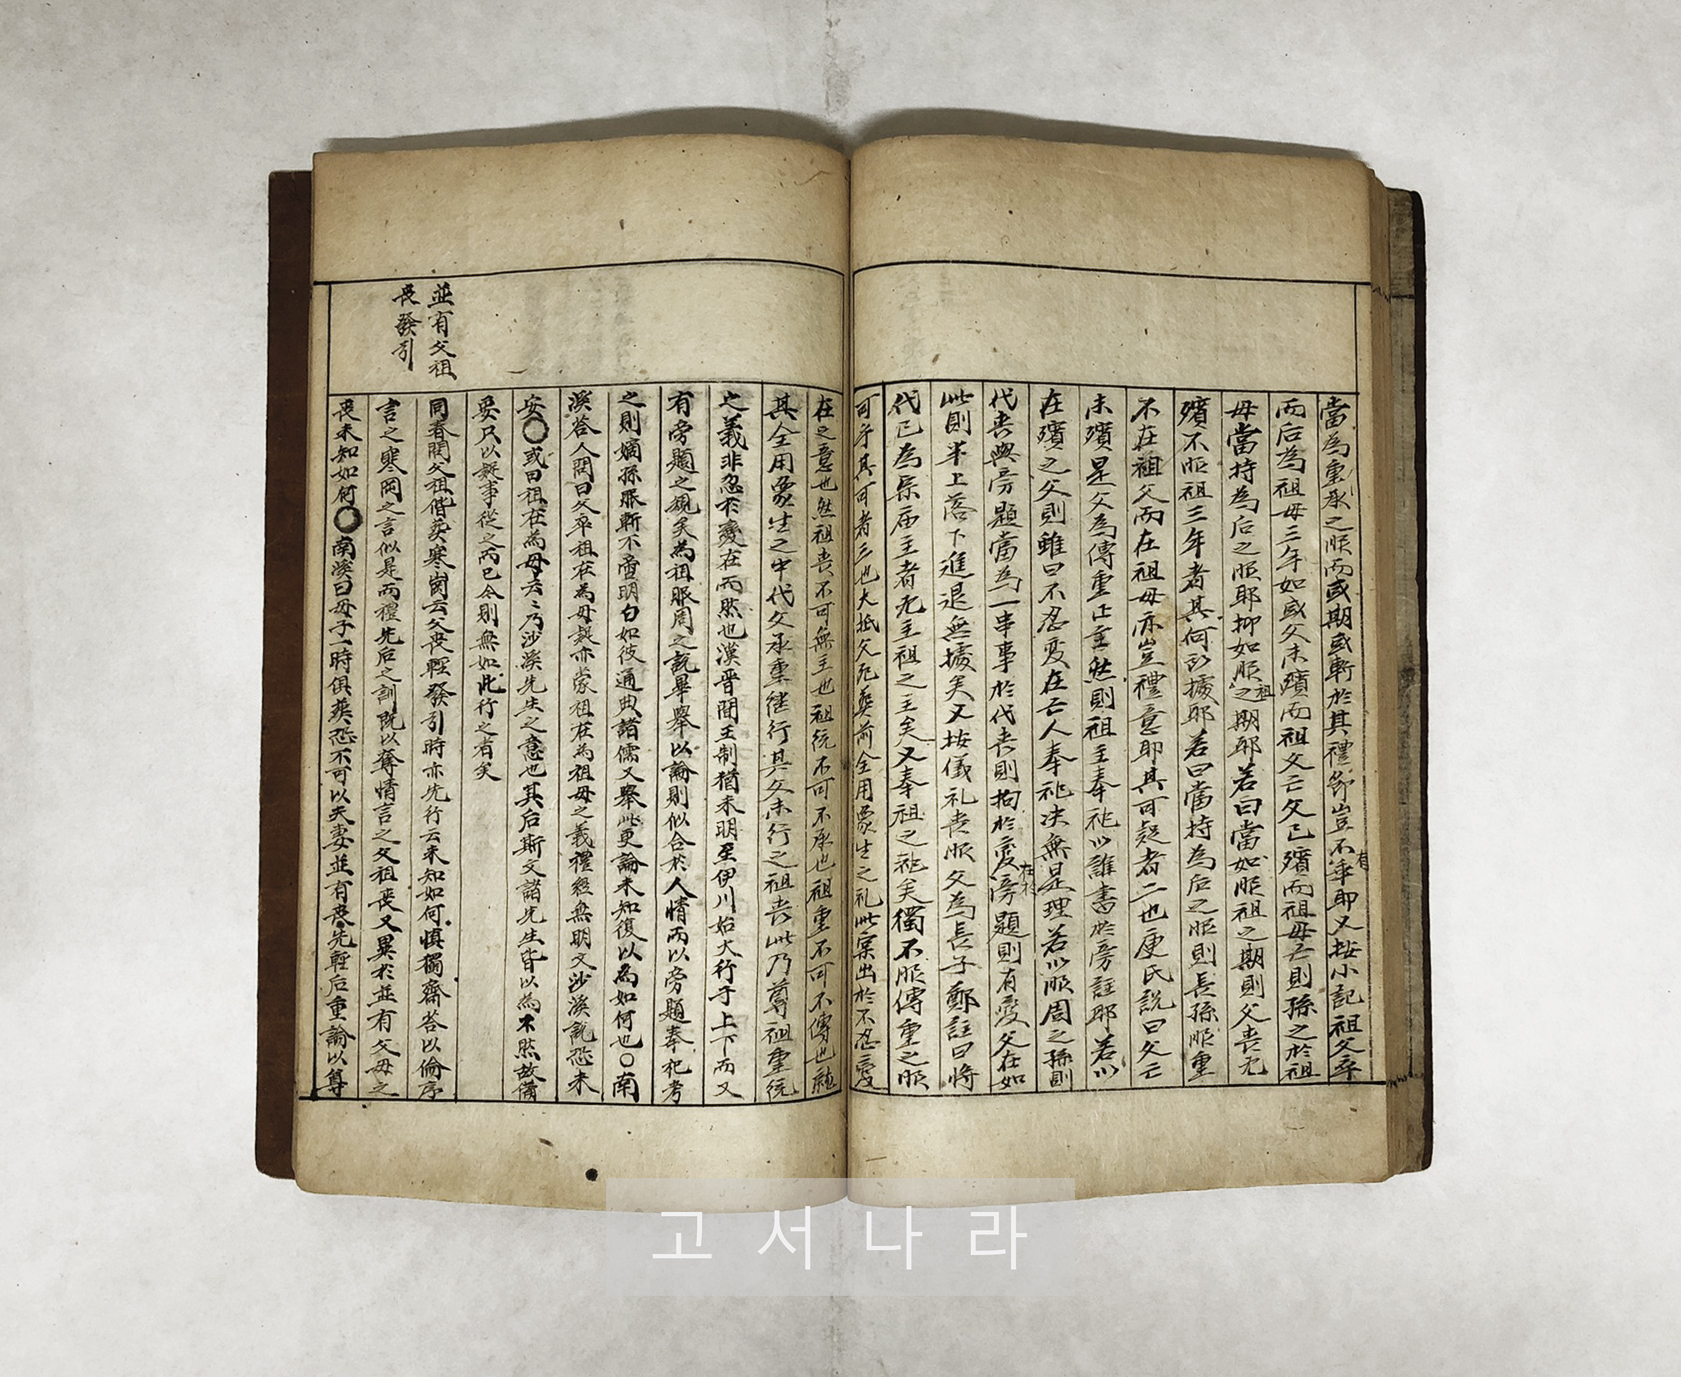 當為重承之服而或期或斬於其禮節豈不有乖耶又按小記祖父卒
而后為祖母三年如或父未殯而祖父亡父已殯而祖母亡則孫之於祖
母當持為后之服耶抑如服祖之期耶若曰當如服祖之期則父喪无
殯不服祖三年者其何所據耶若曰當持為后之服則長孫服重
不在祖父而在祖母亦豈禮意耶其可疑者二也庾氏說曰父亡
未殯是父為傳重正主然則祖主奉祀以誰書於旁註耶若以
在殯之父則雖曰不忍変在亡人奉祀决無是理若以服周之孫則
代喪與旁題當為一事事於代喪則拘於変在於旁題則有変父在如
此則半上落下進退無據矣又按儀礼喪服父為長子鄭註曰將
代已為宗庙主者旡主祖之主矣又奉祖之祀矣獨不服傳重之服
可乎其可者三也大抵父旡葬前全用象生之礼此寀出於不忍変
在之意也然祖喪不可無主也祖統不可不承也祖重不可不傳也離
其全用象生之中代父承重継行其父未行之祖喪此乃尊祖重統
之義非忍於変在而然也漢晋間王制猶未明至伊川始大行于上下而又
有旁題之規矣為祖服周之說畢舉以論則似合於人情而以旁題奉祀考
之則嫡孫服斬不啻明白如彼通典諸儒又舉此更論未知復以為如何也○南
溪答人問曰父卒祖在為母疑亦蒙祖在為祖母之義禮經無明文沙溪說恐未
安○或曰祖在為母云云乃沙溪先生之意也其后斯文諸先生皆以為不然故備
要只以疑事從之而已今則無如此行之者矣
並有父祖
喪發引
同春問父祖偕葬寒崗云父喪輕發引時亦先行云未知如何慎獨齋答以倫序
言之寒岡之言似是而禮先后之訓既以奪情言之父祖喪又異於並有父母之
喪未知如何○南溪曰母子一時俱葬恐不可以夫妻並有喪先輕后重論以尊
고서나라